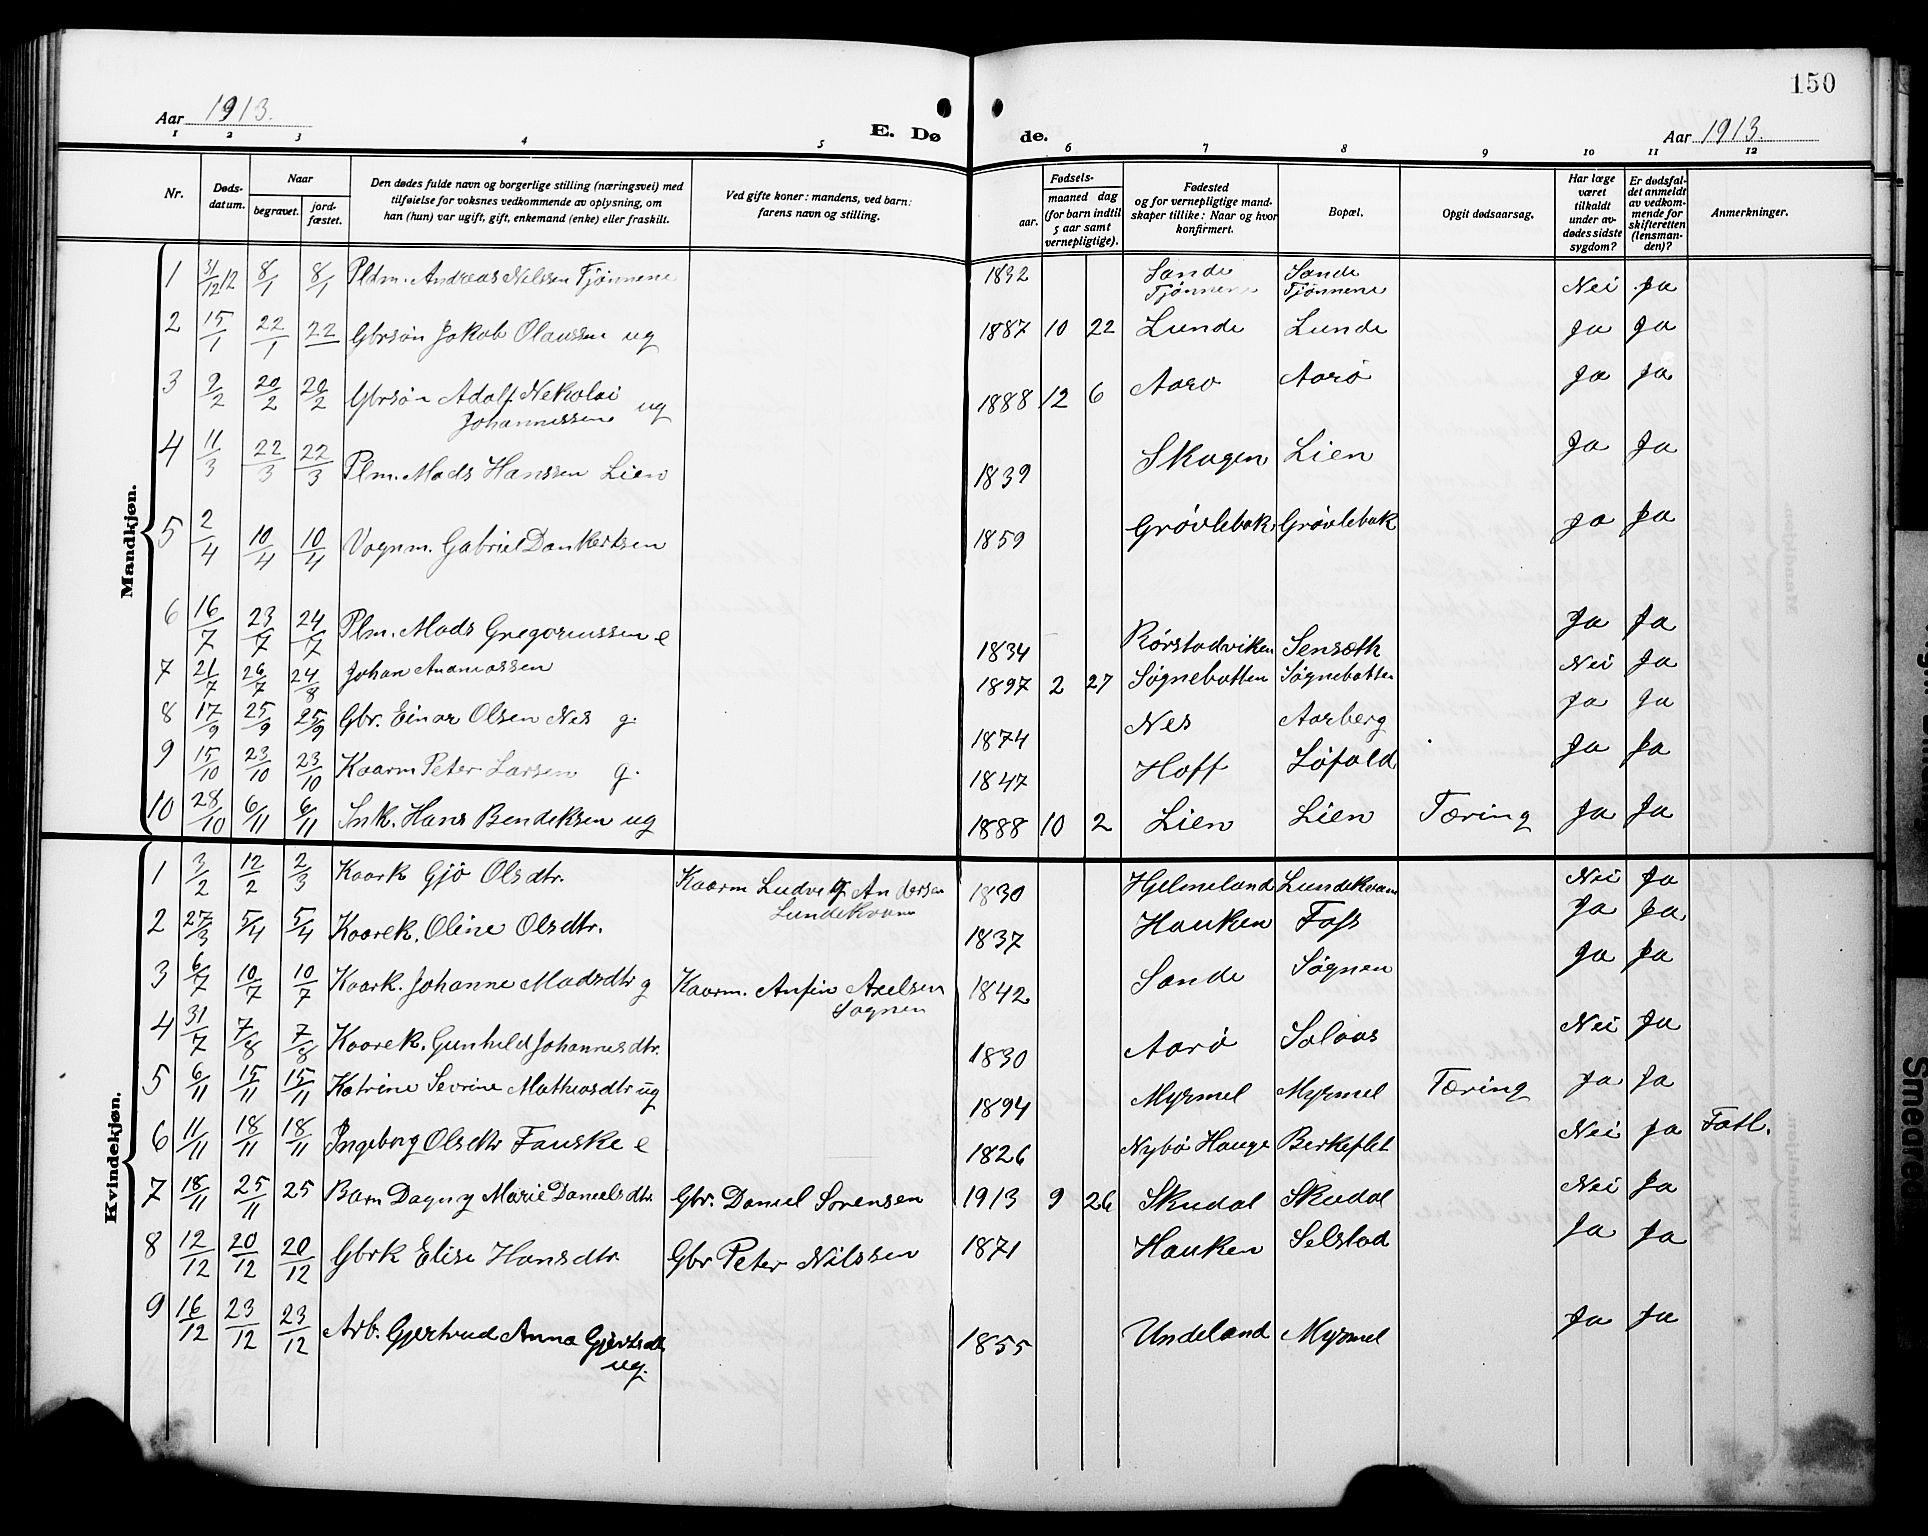 150
Aar 1913. E. Døde. Aar 1913.
1 2 3 4 5 6 7 8 9 10 11 12
Nr. Døds-datum. Naar begravet. jord-fæstet. Den dødes fulde navn og borgerlige stilling (næringsvei) med tilføielse for voksnes vedkommende av oplysning, om han (hun) var ugift, gift, enkemand (enke) eller fraskilt. Ved gifte koner: mandens, ved barn: farens navn og stilling. Fødsels- aar. maaned dag (for barn indtil 5 aar samt vernepligtige). Fødested og for vernepligtige mandskaper tillike: Naar og hvor konfirmert. Bopæl. Opgit dødsaarsag. Har læge været tilkaldt under avdødes sidste sygdom? Er dødsfaldet anmeldt av vedkommende for skifteretten (lensmanden)? Anmerkninger.
Mandkjøn.
1 31/12 12 8/1 8/1 Pldm. Andreas Nilssen Tjønnene 1832 Sande Tjønnene Sande Tjønnene Nei Ja
2 15/1 22/1 22 Gbrsøn Jakob Olaussen ug 1887 10 22 Lunde Lunde Ja Ja
3 9/2 20/2 20/2 Gbrsøn Adolf Nekolai Johannessen ug 1888 12 6 Aarø Aarø Ja Ja
4 11/3 22/3 22/3 Plm. Mads Hanssen Lien 1839 Skagen Lien Ja Ja
5 2/4 10/4 10/4 Vognm. Gabriel Dankertsen 1859 Grøvlebak Grøvlebak Ja Ja
6 16/7 23/7 24/7 Plm. Mads Gregoriussen e 1834 Rørstadviken Sensæth Ja Ja
7 21/7 26/7 24/8 Johan Ananiassen 1897 2 27 Søgnebotten Søgnebotten Nei Ja
8 17/9 25/9 25/9 Gbr. Einar Olsen Nes g. 1874 Nes Aarberg Ja Ja
9 15/10 23/10 23/10 Kaarm Peter Larsen g. 1847 Hoff Løfald Ja Ja
10 28/10 6/11 6/11 Snk. Hans Bendeksen ug 1888 10 2 Lien Lien Tæring Ja Ja
Kvindekjøn.
1 3/2 12/2 2/3 Kaark Gjø Olsdtr. Kaarm Ludvig Andersen Lundekvam 1830 Hjelmeland Lundekvam Nei Ja
2 27/3 5/4 5/4 Kaarek. Oline Olsdtr. 1837 Hauken Foss Ja Ja
3 6/7 10/7 10/7 Kaark. Johanne Madsdtr g Kaarm. Anfin Axelsen Søgnen 1842 Sande Søgnen Ja Ja
4 31/7 7/8 7/8 Kaarek. Gunhild Johannesdtr. 1830 Aarø Solaas Nei Ja
5 6/11 15/11 15/11 Katrine Sevrine Mathiasdtr ug 1894 Myrmel Myrmel Tæring Ja Ja
6 11/11 18/11 18/11 Ingeborg Olsdtr Fauske e 1826 Nybø Hauge Berkeflet Nei Ja Fatl.
7 18/11 25/11 25 Barn Dagny Marie Danielsdtr. Gbr. Daniel Sørensen 1913 9 26 Skudal Skudal Nei Ja
8 12/12 20/12 20/12 Gbrk Elise Hansdtr. Gbr Peter Nilssen 1871 Hauken Selstad Ja Ja
9 16/12 23/12 23/12 Arb. Gjertrud Anna Gjertsdtr ug. 1855 Undeland Myrmel Ja Ja
Smeared